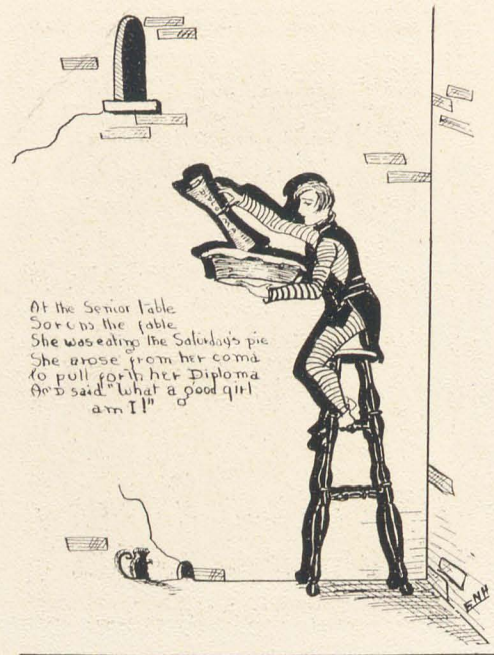 At the Senior Table
So runs the fable
She was eating the Saturday's pie
She arose from her coma
to pull forth her Diploma
And said "What a good girl
am I!"
ENH